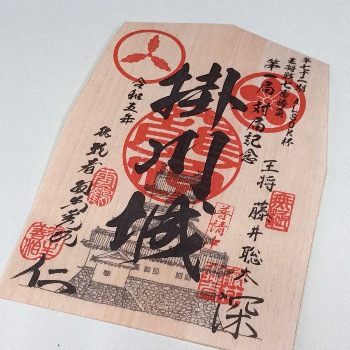 第七十二期ALSOK杯
王将戦七番勝負
第一局対局記念
王将 藤井聡太
深
掛川城
令和五年
挑戦者 羽生善治
仁